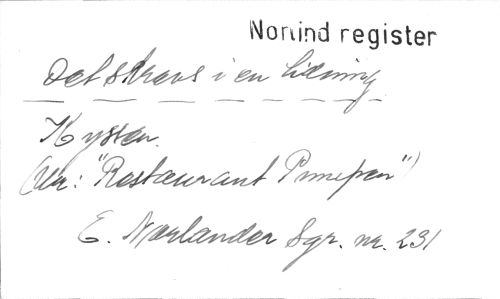 Norlind register
Det skrevs i en tidning
Kyssen.
(Ur: "Restaurant Prinsen")
E. Norlander Sgr. nr. 231